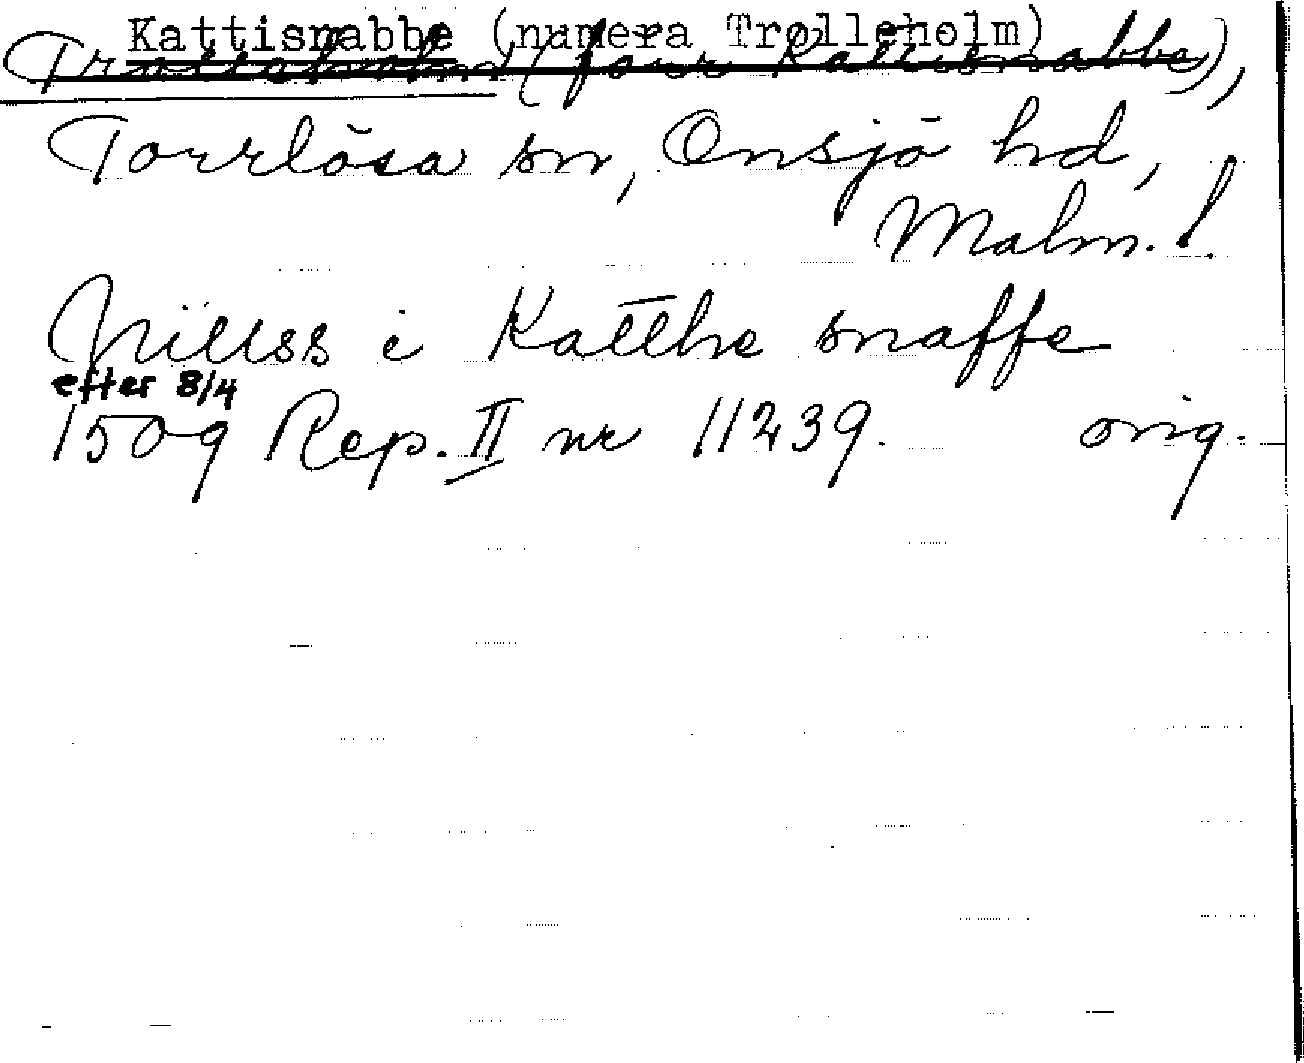 Kattisnabbe (numera Trolleholm)
Trolleholm (förr Kattisnabbe),
Torrlösa sn, Onsjö hd,
Malm. l.
Nillss i Katthe snaffe
efter 8/4
1509 Rep. II nr 11239. orig.